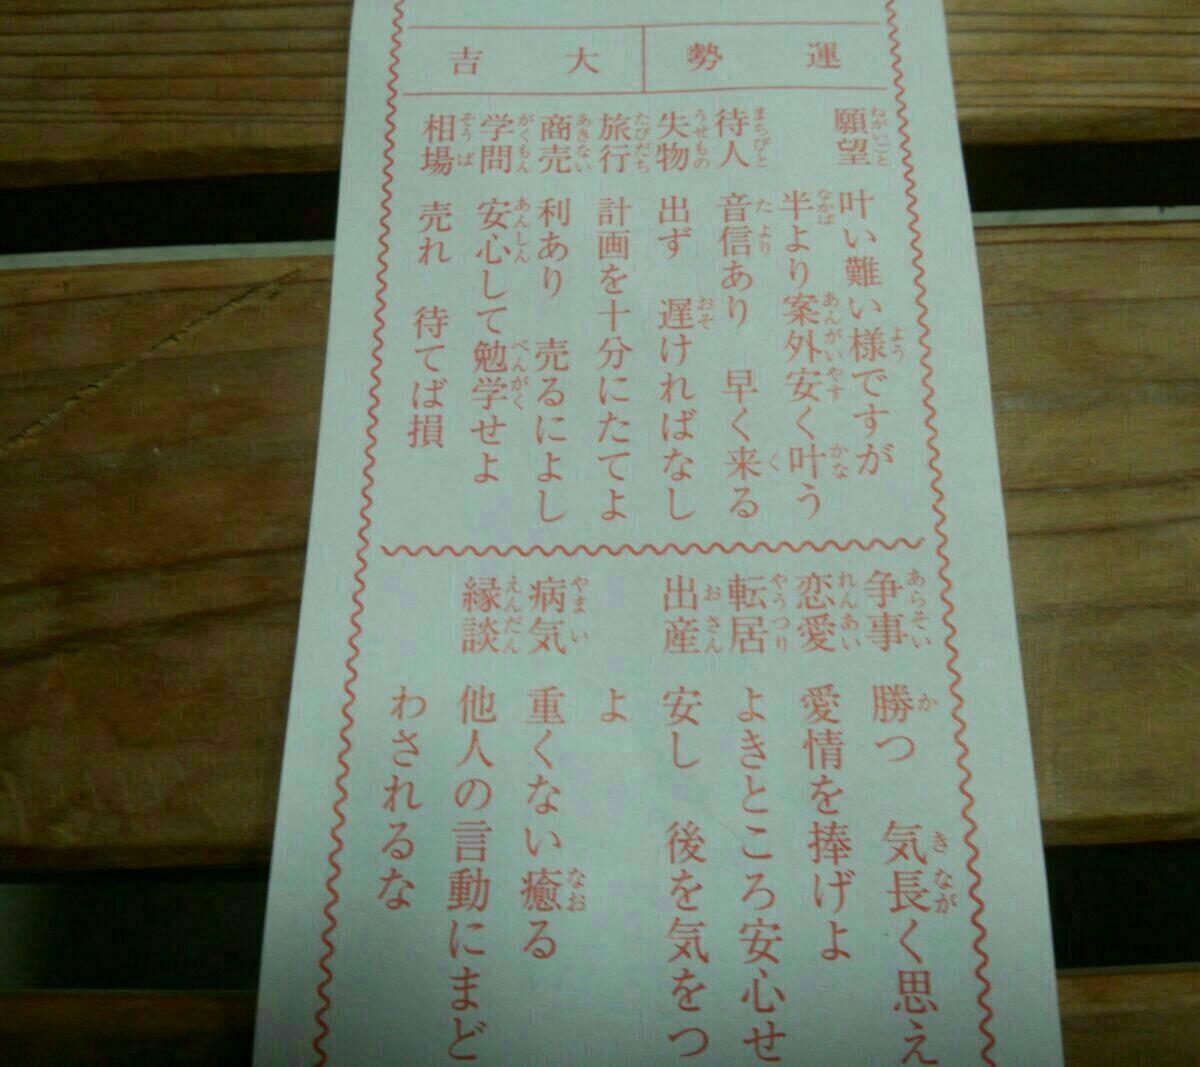 運勢 大吉
願望 叶い難い様ですが
半より案外安く叶う
待人 音信あり 早く来る
失物 出ず 遅ければなし
旅行 計画を十分にたてよ
商売 利あり 売るによし
学問 安心して勉学せよ
相場 売れ 待てば損
争事 勝つ 気長く思え
恋愛 愛情を捧げよ
転居 よきところ安心せ
出産 安し 後を気をつ
よ
病気 重くない癒る
縁談 他人の言動にまど
わされるな